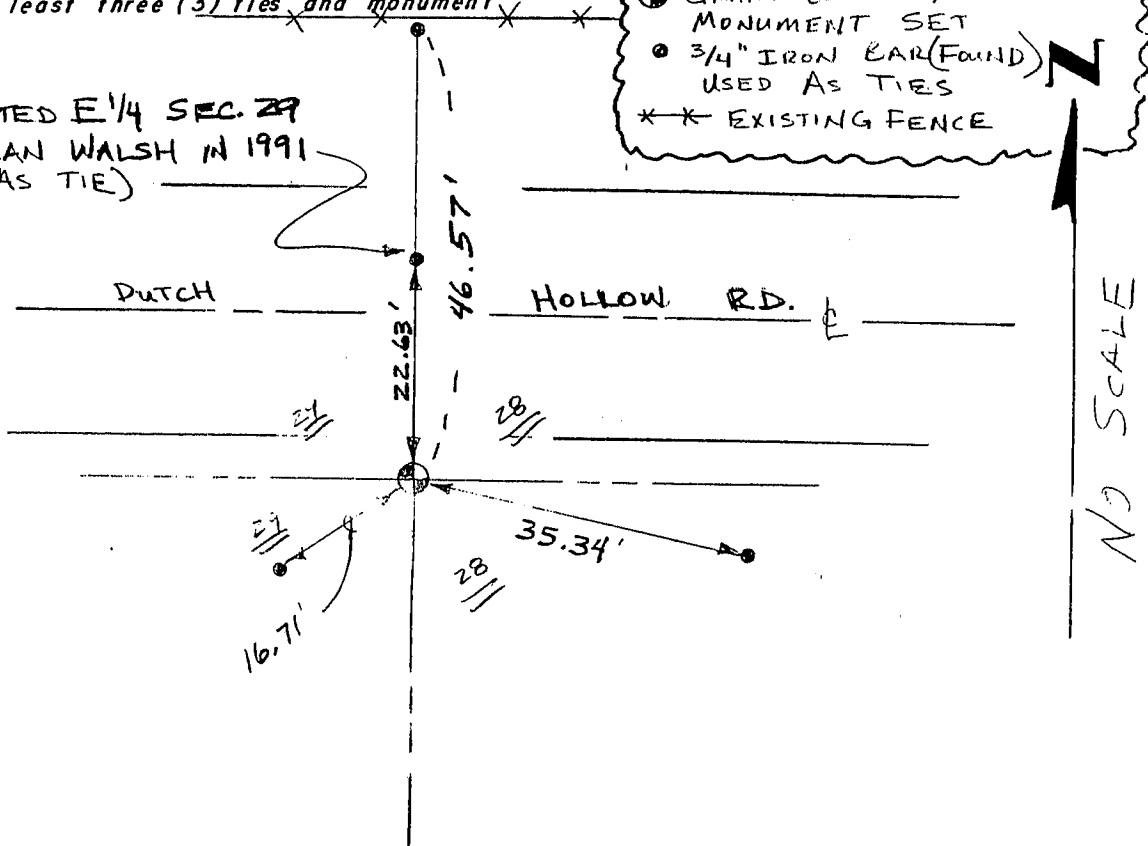 least three (3) ties and monument
MONUMENT SET
3/4" IRON BAR (FOUND)
USED AS TIES
EXISTING FENCE
N
E 1/4 SEC. 29
WALSH IN 1991
AS TIE)
46.57'
DUTCH HOLLOW RD. ℄
22.63'
29 28
35.34'
29
28
16.71'
NO SCALE